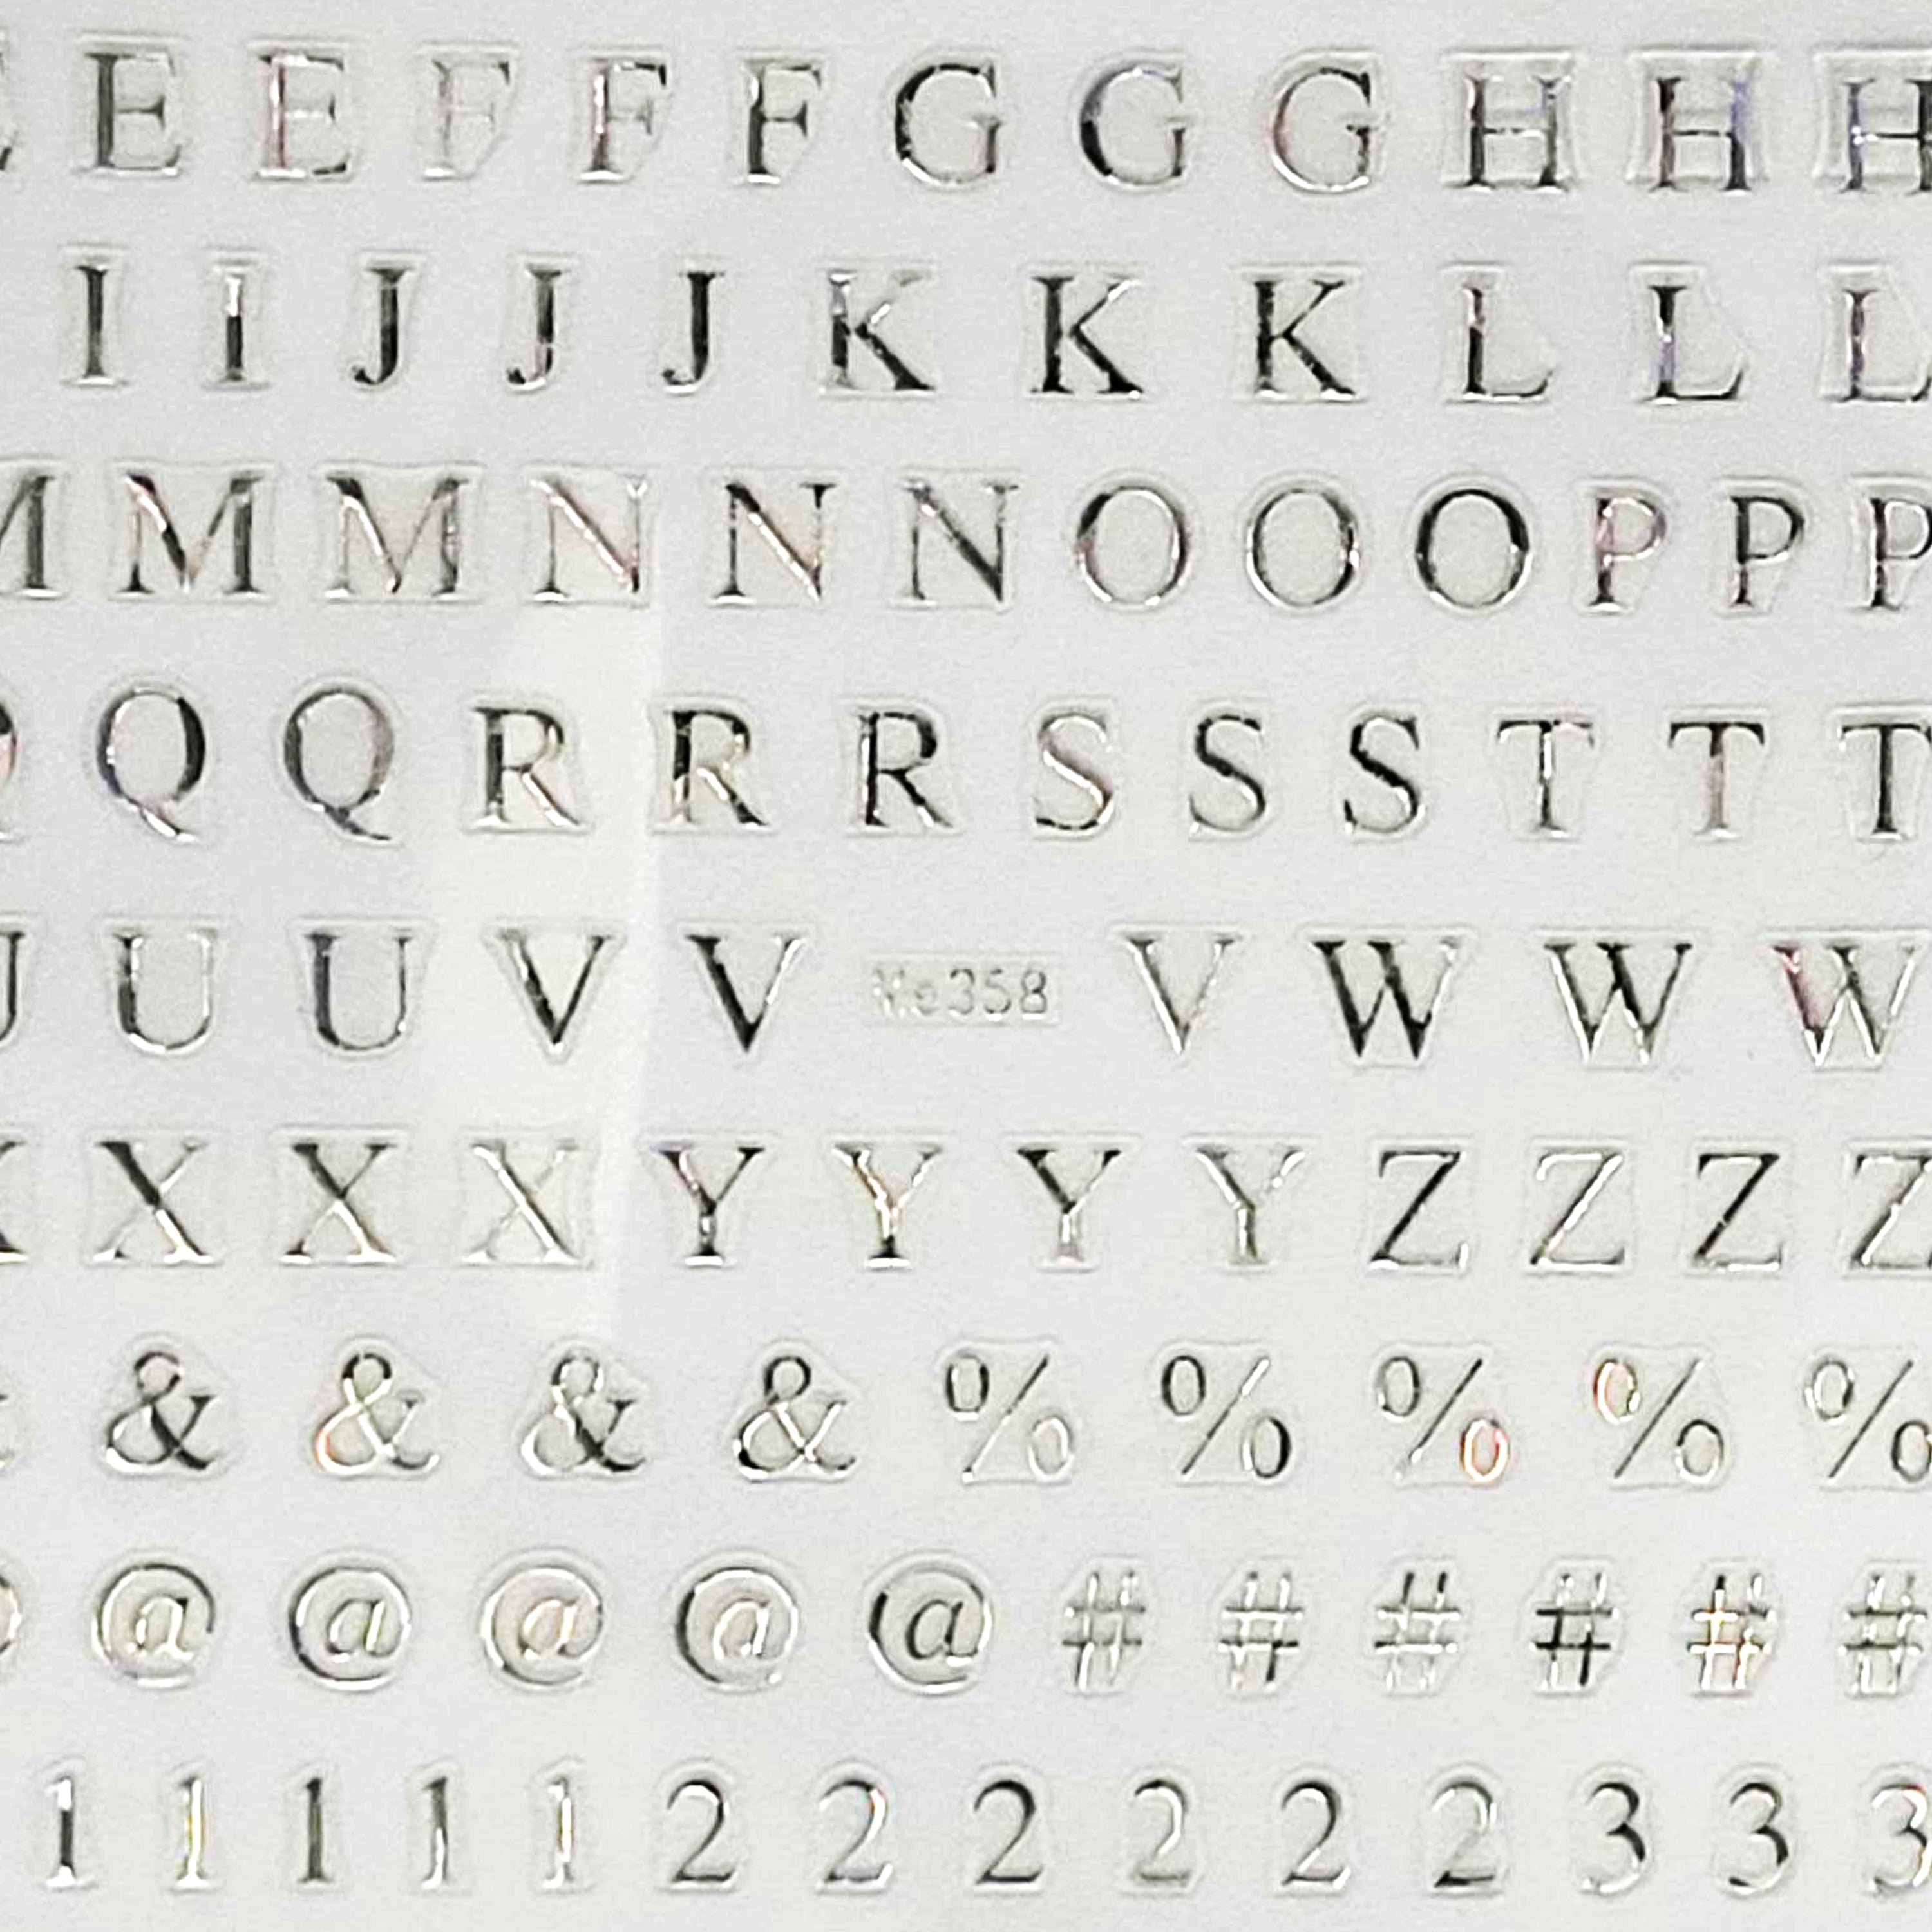 E E E F F F G G G H H H
I I J J J K K K L L L
M M M N N N O O O P P P
Q Q Q R R R S S S T T T
U U U V V Me358 V W W W
X X X X Y Y Y Y Z Z Z Z
& & & & & % % % % %
@ @ @ @ @ @ # # # # # #
1 1 1 1 1 2 2 2 2 2 2 3 3 3